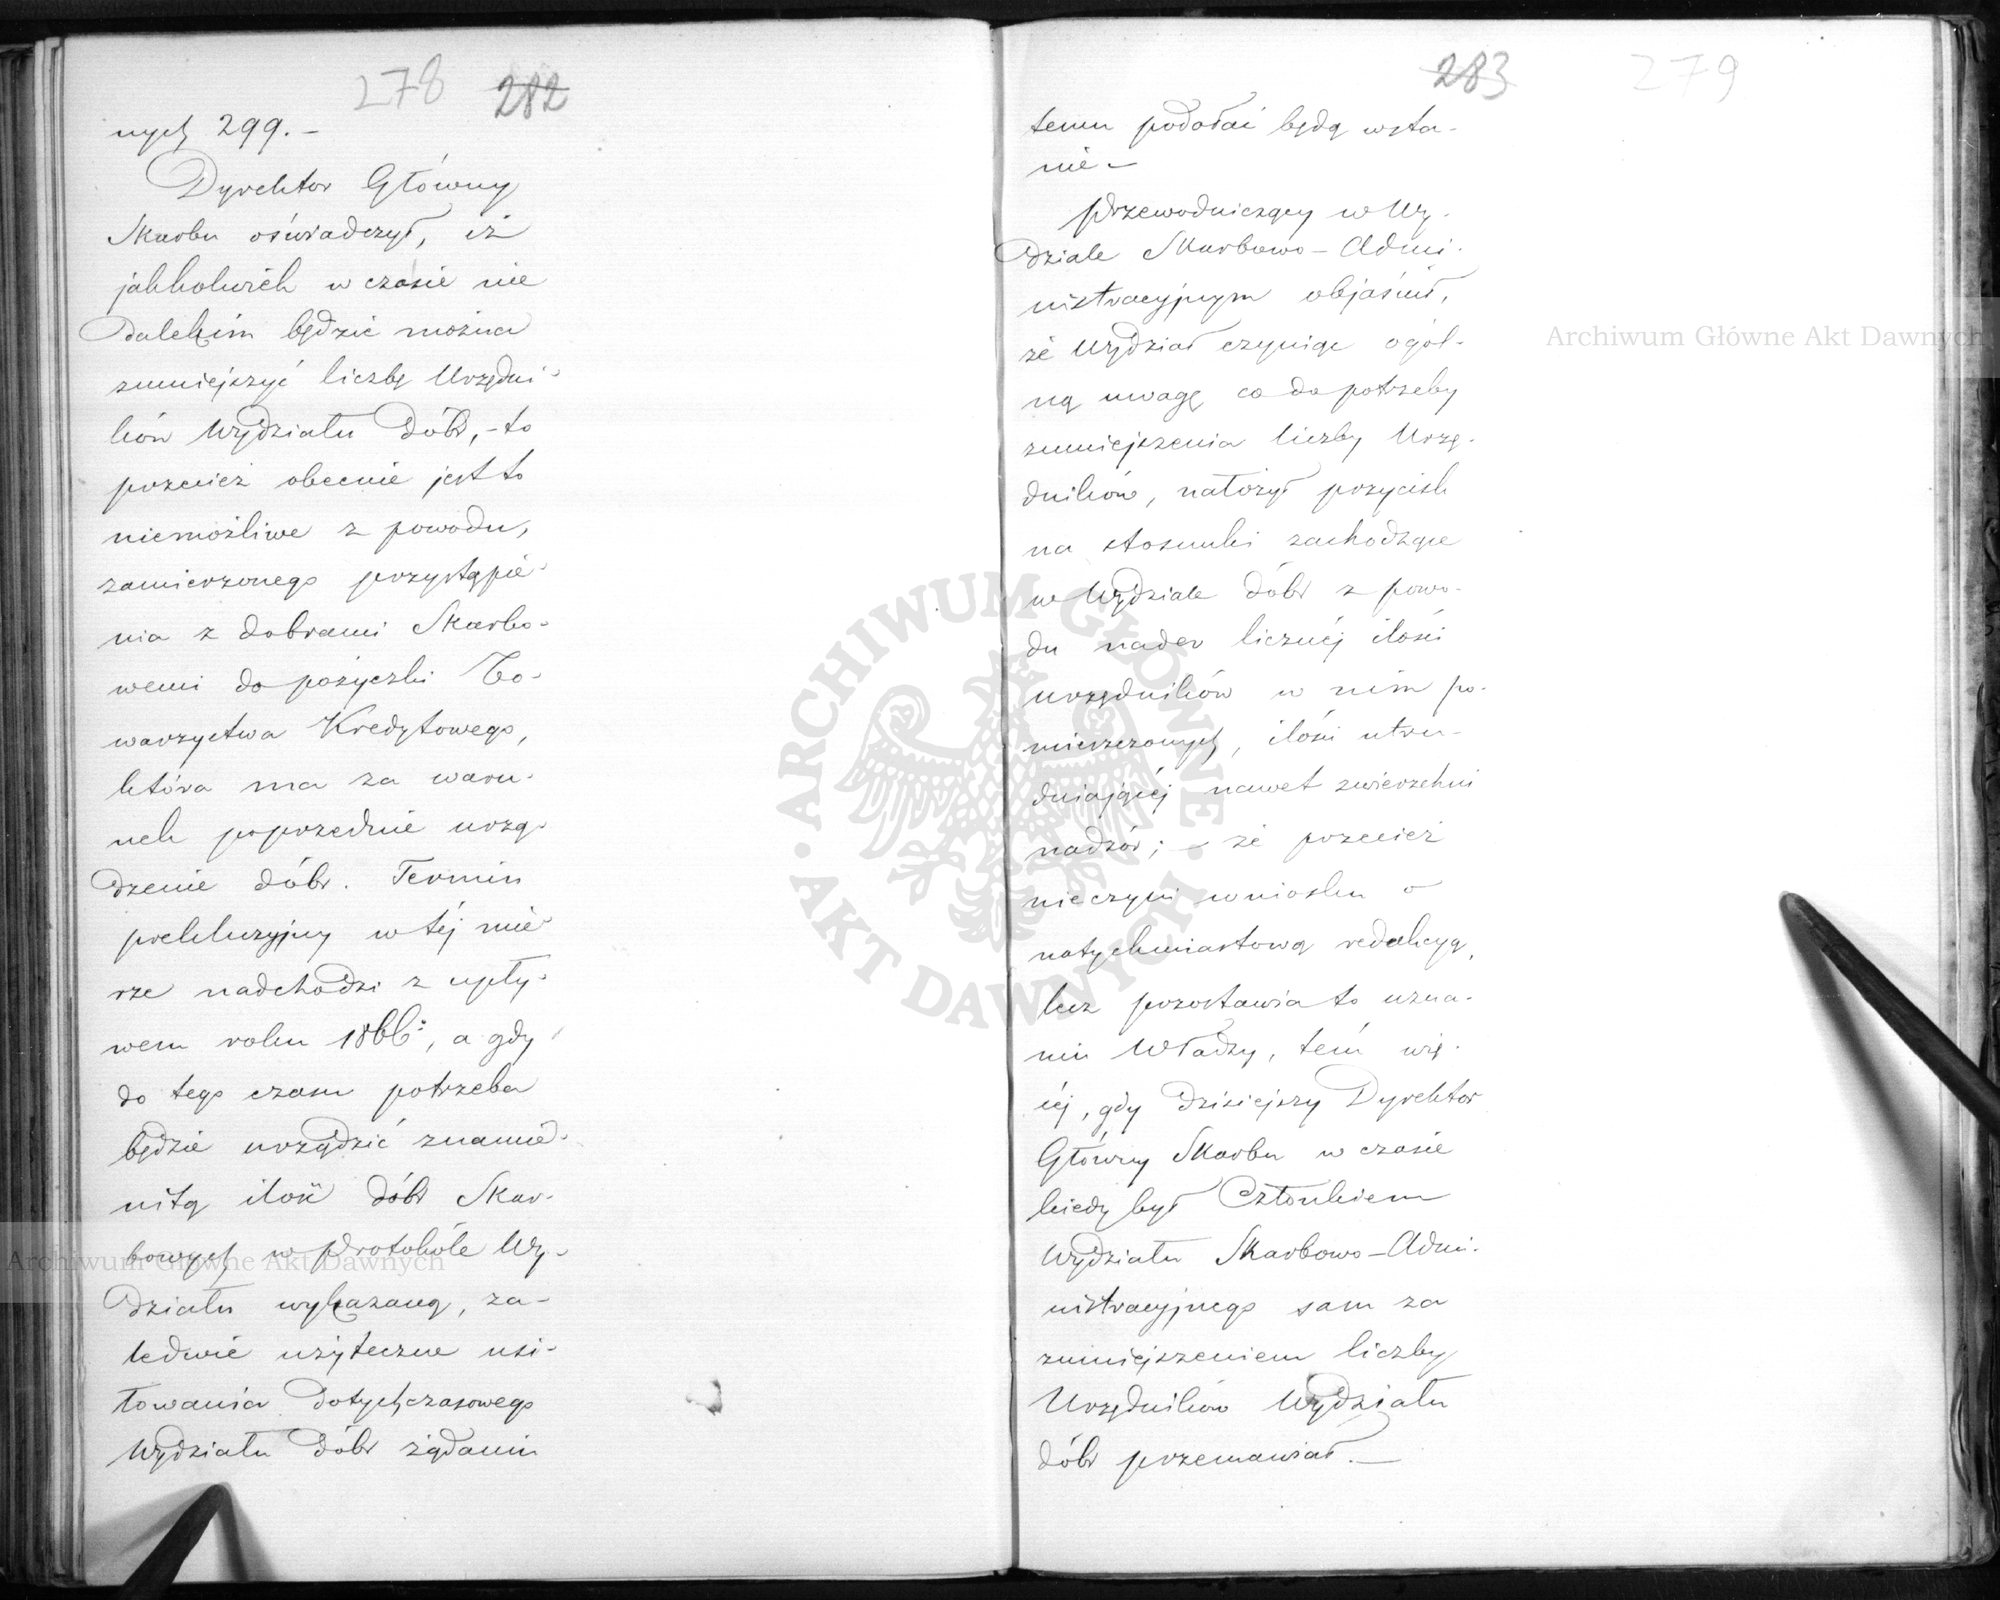 278 282
nych 299. –
Dyrektor Główny
Skarbu oświadczył, iż
jakkolwiek w czasie nie
dalekim będzie można
zmniejszyć liczbę Urzędni-
ków Wydziału Dóbr, – to
przecież obecnie jest to
niemożliwe z powodu,
zamierzonego przystąpie-
nia z dobrami Skarbo-
wemi do pożyczki To-
warzystwa Kredytowego,
która ma za waru-
nek poprzednie urzą-
dzenie dóbr. Termin
prekluzyjny w téj mie-
rze nadchodzi z upły-
wem roku 1866, a gdy
do tego czasu potrzeba
będzie urządzić znamie-
nitą ilość dóbr Skar-
bowych w Protokóle Wy-
działu wykazaną, za-
ledwie użyteczne usi-
łowania dotychczasowego
Wydziału Dóbr żądaniu
283 279
temu podołać będą wsta-
nie –
Przewodniczący w Wy-
dziale Skarbowo – Admi-
nistracyjnym objaśnił,
że Wydział czyniąc ogól-
ną uwagę co do potrzeby
zmniejszenia liczby Urzę-
dników, nałożył przycisk
na stosunki zachodzące
w Wydziale dóbr z powo-
du nader licznéj ilości
urzędników w nim po-
mieszczonych, ilości utru-
dniającéj nawet zwierzchni
nadzór; – że przecież
nie czyni wniosku o
natychmiastową redukcyą,
lecz pozostawia to uzna-
niu Władzy, tém wię-
céj, gdy dzisiejszy Dyrektor
Główny Skarbu w czasie
kiedy był Członkiem
Wydziału Skarbowo – Admi-
nistracyjnego sam za
zmniejszeniem liczby
Urzędników Wydziału
dóbr przemawiał. –
Archiwum Główne Akt Dawnych
Archiwum Główne Akt Dawnych
ARCHIWUM GŁÓWNE · AKT DAWNYCH ·